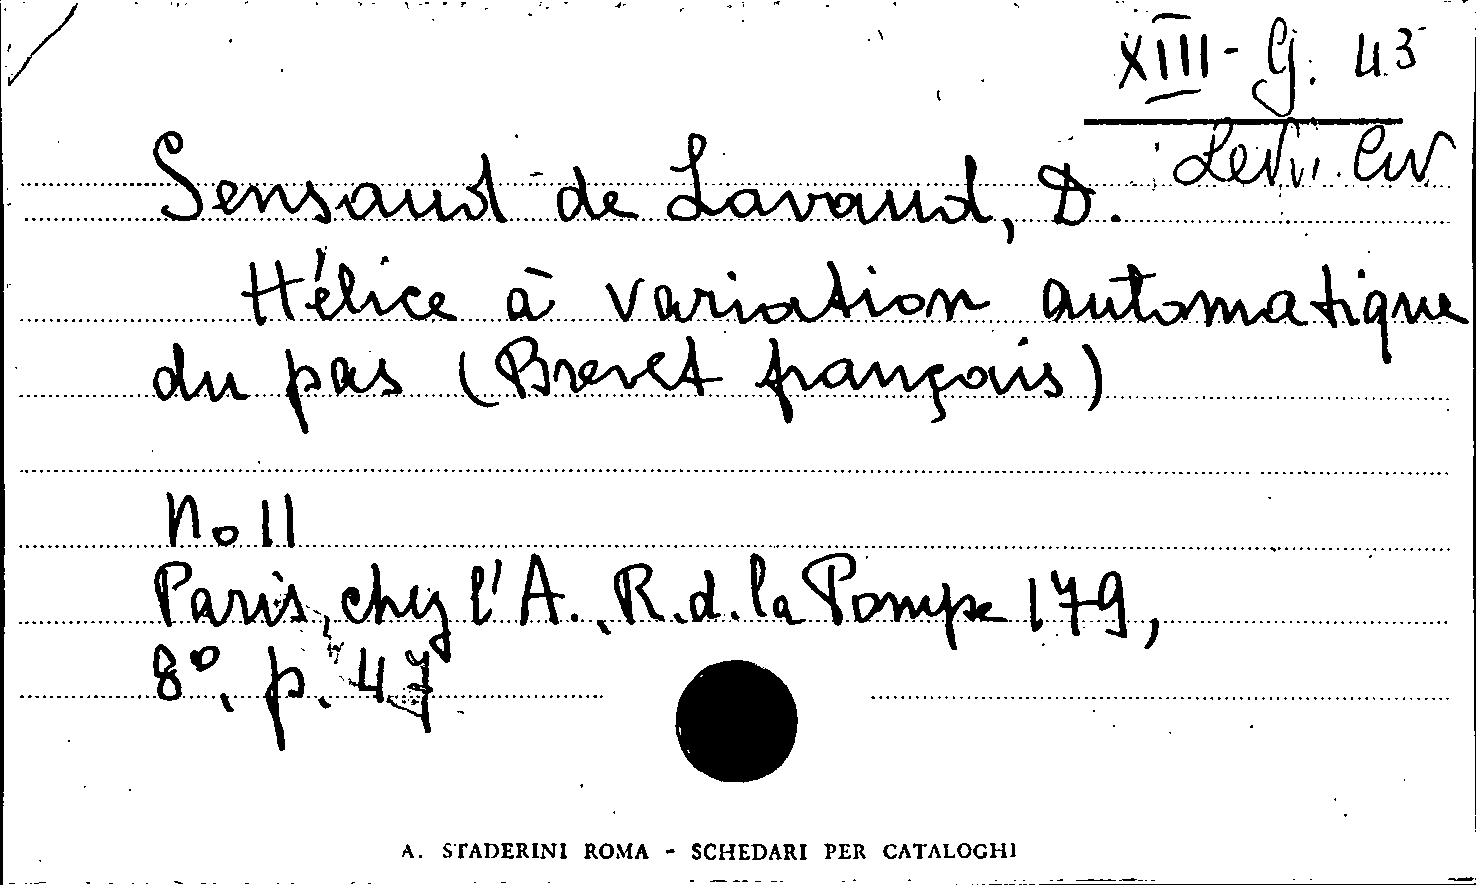 XIII - G. 43
Levi. Civ
Sensaud de Lavaud, D.
Hélice à variation automatique
du pas (Brevet français)
No 11
Paris, chez l'A., R. d. la Pompe 179,
8°, p. 47
A. STADERINI ROMA - SCHEDARI PER CATALOGHI